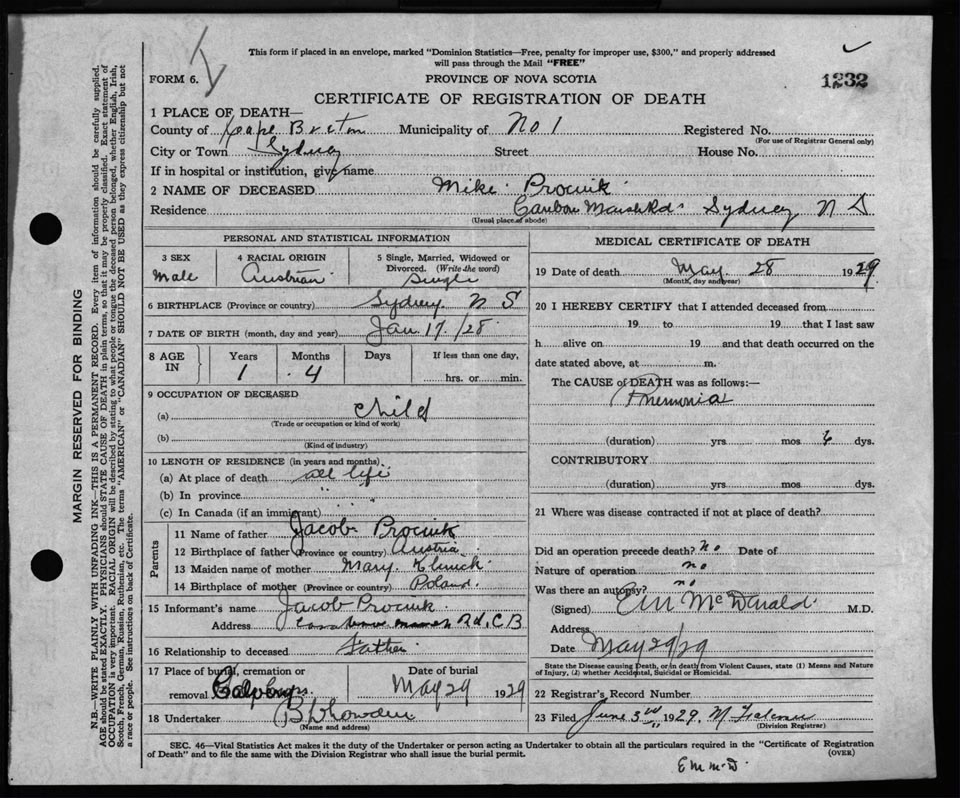 This form if placed in an envelope, marked "Dominion Statistics—Free, penalty for improper use, $300," and properly addressed
will pass through the Mail "FREE"
FORM 6.
PROVINCE OF NOVA SCOTIA
1232
CERTIFICATE OF REGISTRATION OF DEATH
1 PLACE OF DEATH—
County of Cape Breton Municipality of No 1 Registered No.
(For use of Registrar General only)
City or Town Sydney Street House No.
If in hospital or institution, give name
2 NAME OF DECEASED Mike Prociuk
Residence Caribou Marsh Rd. Sydney N S
(Usual place of abode)
PERSONAL AND STATISTICAL INFORMATION
3 SEX
Male
4 RACIAL ORIGIN
Austrian
5 Single, Married, Widowed or
Divorced. (Write the word)
Single
6 BIRTHPLACE (Province or country) Sydney N S
7 DATE OF BIRTH (month, day and year) Jan. 17/28
8 AGE IN
Years
1
Months
4
Days
If less than one day,
hrs. or min.
9 OCCUPATION OF DECEASED
(a) Child
(Trade or occupation or kind of work)
(b)
(Kind of industry)
10 LENGTH OF RESIDENCE (in years and months)
(a) At place of death all life
(b) In province "
(c) In Canada (if an immigrant) "
Parents
11 Name of father Jacob Prociuk
12 Birthplace of father (Province or country) Austria
13 Maiden name of mother Mary
14 Birthplace of mother (Province or country) Poland
15 Informant's name Jacob Prociuk
Address Rd, C B
16 Relationship to deceased Father
17 Place of burial, cremation or
removal
Date of burial
May 29 1929
18 Undertaker
(Name and address)
MEDICAL CERTIFICATE OF DEATH
19 Date of death May 28 1929
(Month, day and year)
20 I HEREBY CERTIFY that I attended deceased from
19 to 19 that I last saw
h alive on 19 and that death occurred on the
date stated above, at m.
The CAUSE of DEATH was as follows:—
Pneumonia
(duration) yrs mos 6 dys.
CONTRIBUTORY
(duration) yrs mos dys.
21 Where was disease contracted if not at place of death?
Did an operation precede death? no Date of
Nature of operation no
Was there an autopsy? no
(Signed) E M McDonald M.D.
Address
Date May 29/29
State the Disease causing Death, or in death from Violent Causes, state (1) Means and Nature
of Injury, (2) whether Accidental, Suicidal or Homicidal.
22 Registrar's Record Number
23 Filed June 3rd 1929. M
(Division Registrar)
SEC. 46—Vital Statistics Act makes it the duty of the Undertaker or person acting as Undertaker to obtain all the particulars required in the "Certificate of Registration
of Death" and to file the same with the Division Registrar who shall issue the burial permit.
(OVER)
E m m D.
MARGIN RESERVED FOR BINDING
N.B.—WRITE PLAINLY WITH UNFADING INK—THIS IS A PERMANENT RECORD. Every item of information should be carefully supplied.
AGE should be stated EXACTLY. PHYSICIANS should STATE CAUSE OF DEATH in plain terms, so that it may be properly classified. Exact statement of
OCCUPATION is very important. RACIAL ORIGIN will be described by stating to what people or tongue the deceased person belonged, whether English, Irish,
Scotch, French, German, Russian, Ruthenian, etc. The terms "AMERICAN" or "CANADIAN" SHOULD NOT BE USED as they express citizenship but not
a race or people. See instructions on back of Certificate.